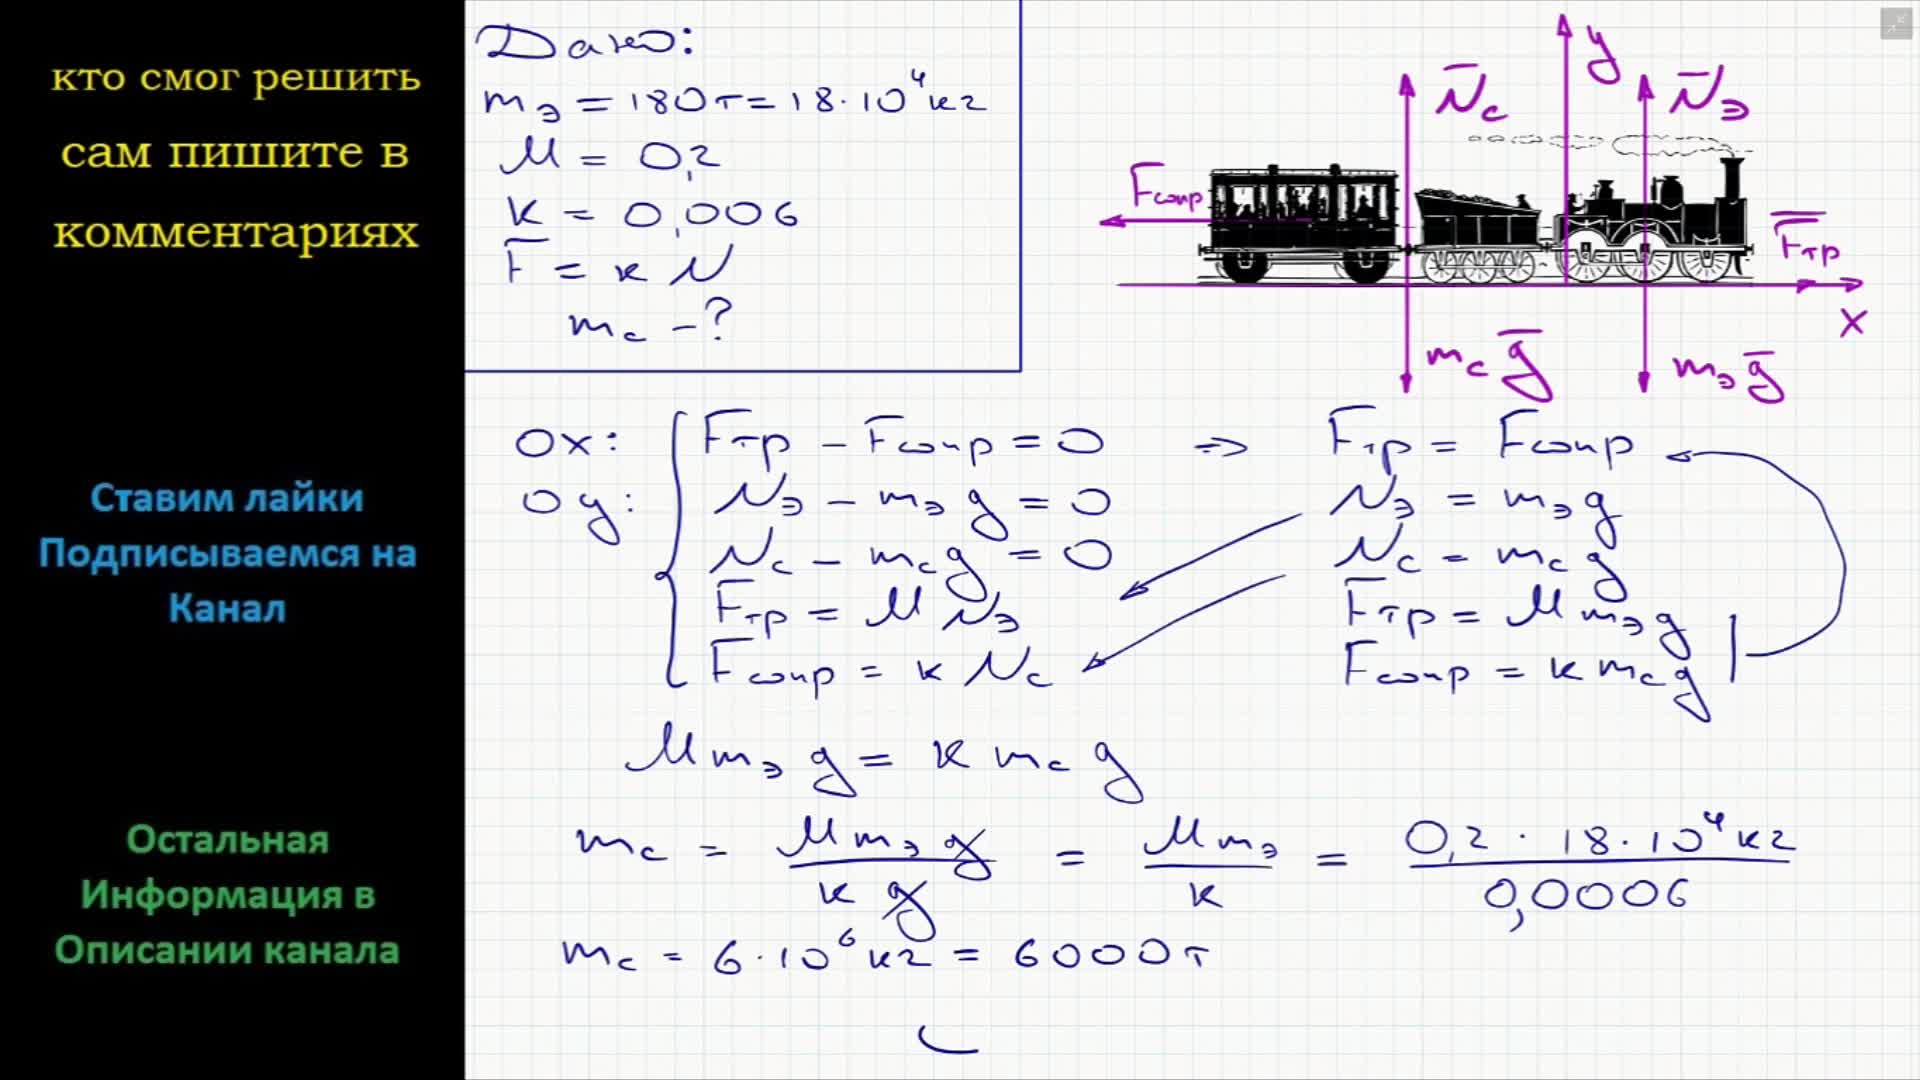 кто смог решить
сам пишите в
комментариях
Ставим лайки
Подписываемся на
Канал
Остальная
Информация в
Описании канала
Дано:
mэ = 180т = 18·10⁴кг
μ = 0,2
k = 0,006
F = k N
mс – ?
N̅с
y
N̅э
Fсопр
F̅тр
x
mс g̅
mэ g̅
Ox: Fтр – Fсопр = 0 ⇒ Fтр = Fсопр
Oy: Nэ – mэ g = 0 Nэ = mэ g
Nс – mс g = 0 Nс = mс g
Fтр = μ Nэ Fтр = μ mэ g
Fсопр = k Nс Fсопр = k mс g
μ mэ g = k mс g
mс = μ mэ g / k g = μ mэ / k = 0,2 · 18·10⁴кг / 0,0006
mс = 6·10⁶ кг = 6000т